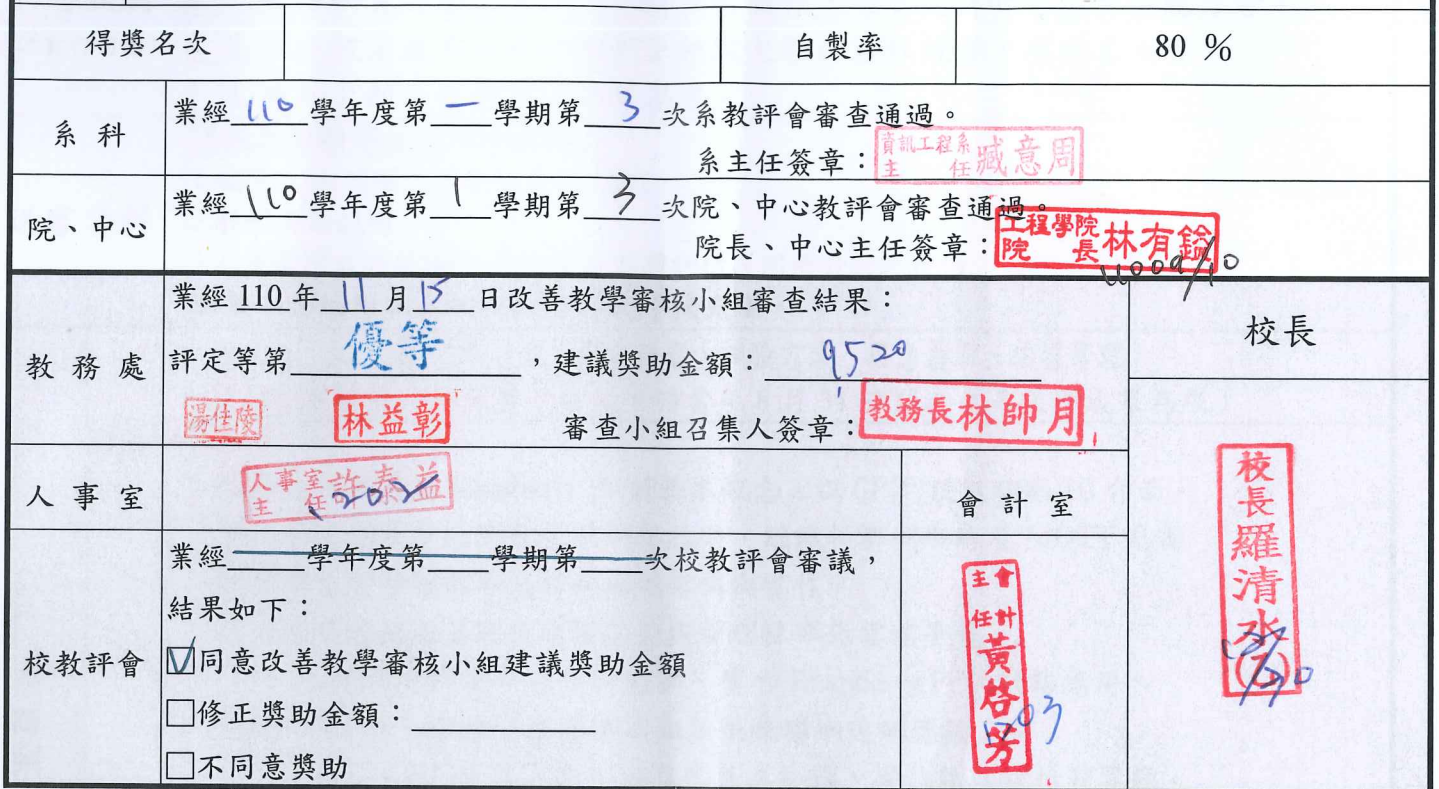 得獎名次 自製率 80 %
系科 業經 110 學年度第 一 學期第 3 次系教評會審查通過。
系主任簽章：資訊工程系主任臧意周
院、中心 業經 110 學年度第 1 學期第 3 次院、中心教評會審查通過。
院長、中心主任簽章：工程學院院長林有鎰
教務處 業經 110 年 11 月 15 日改善教學審核小組審查結果：
評定等第 優等 ，建議獎助金額： 9520
湯佳陵 林益彰 審查小組召集人簽章：教務長林帥月
校長
校長羅清水
人事室 人事室主任許泰益
會計室
會計主任黃啓芳
1203
校教評會 業經 學年度第 學期第 次校教評會審議，
結果如下：
☑同意改善教學審核小組建議獎助金額
□修正獎助金額：
□不同意獎助